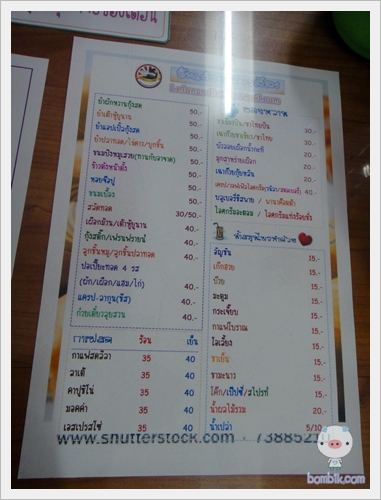 ยำผักหวานกุ้งสด 50.-
ยำเต้าหู้ญี่ปุ่น 50.-
ยำแอปเปิ้ลกุ้งสด 50.-
ยำปลาทอด/ไข่ดาว/มูกรอบ 50.-
ขนมปังหมูสวย(ทานกับอาจาด) 50.-
ข้าวตังหน้าตั้ง 50.-
หอยจ๊อปู 50.-
ขนมเบื้อง 50.-
สลัดทอด 30/50.-
เผือกม้วน/เต้าหู้ญี่ปุ่น 40.-
กุ้งสติ๊ก/เฟรนฟรายน์ 40.-
ลูกชิ้นหมู/ลูกชิ้นปลาทอด 40.-
ปอเปี๊ยะทอด 4 รส
(ผัก/เผือก/แฮม/ไก่) 40.-
แครป-ลากูน(ชีส) 40.-
ก๋วยเตี๋ยวลุยสวน 40.-
กาแฟสด ร้อน เย็น
กาแฟสดลีลา 35 40
ลาเต้ 35 40
คาปูชิโน่ 35 40
มอคค่า 35 40
เอสเปรสโซ่ 35 40
30.-
30.-
บัวลอยเผือกน้ำกะทิ 20.-
ลูกสาหร่ายเผือก 30.-
เฉาก๊วยทุ้ยหลิน 20.-
อัญชัน 15.-
เก๊กฮวย 15.-
บ๊วย 15.-
มะตูม 15.-
กระเจี๊ยบ 15.-
กาแฟโบราณ 15.-
โอเลี้ยง 15.-
ชาเย็น 15.-
ชามะนาว 15.-
โค๊ก/เป๊ปซี่/สไปรท์ 15.-
น้ำผลไม้รวม 20.-
น้ำเปล่า 5/10
www.shutterstock.com · 73885210
bombik.com